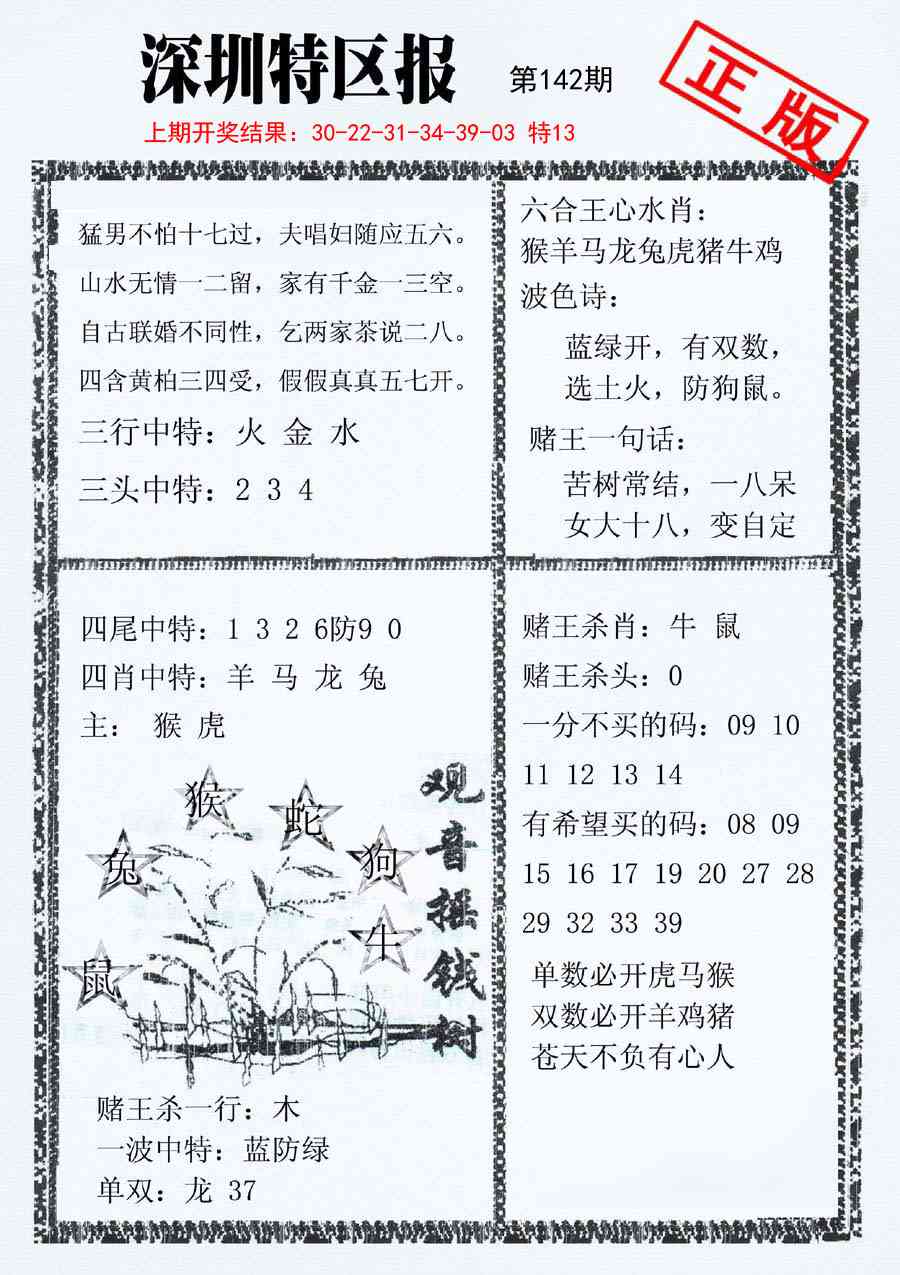 深圳特区报
第142期
正版
上期开奖结果：30-22-31-34-39-03 特13
猛男不怕十七过，夫唱妇随应五六。
山水无情一二留，家有千金一三空。
自古联婚不同性，乞两家茶说二八。
四含黄柏三四受，假假真真五七开。
三行中特：火 金 水
三头中特：2 3 4
六合王心水肖：
猴羊马龙兔虎猪牛鸡
波色诗：
蓝绿开，有双数，
选土火，防狗鼠。
赌王一句话：
苦树常结，一八呆
女大十八，变自定
四尾中特：1 3 2 6防9 0
四肖中特：羊 马 龙 兔
主： 猴 虎
猴
蛇
兔
狗
牛
鼠
观音摇钱树
赌王杀一行：木
一波中特：蓝防绿
单双：龙 37
赌王杀肖：牛 鼠
赌王杀头：0
一分不买的码：09 10
11 12 13 14
有希望买的码：08 09
15 16 17 19 20 27 28
29 32 33 39
单数必开虎马猴
双数必开羊鸡猪
苍天不负有心人